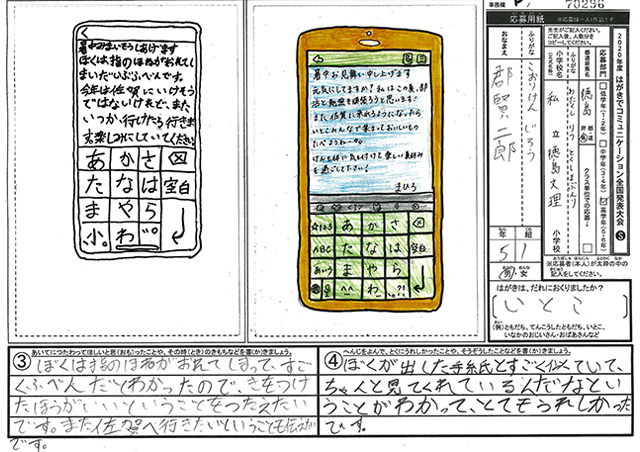 暑中おみまいもうしあげます
ぼくは指のほねがおれてし
まいだいぶふべんです。
今年は佐賀にいけそう
ではないけれど、また
いつか行けたら行きま
す。楽しみにしていてください。
あ か さ
た な は 空白
ま や ら
小。 わ
暑中お見舞い申し上げます
元気にしてますか？私はこの夏、部
活と勉強を頑張ろうと思います!
また佐賀に来れるようになったら
いとこみんなで集まっておいしいもの
たべようね
けんも体に気を付けて楽しい夏休み
を過ごして下さい!
まひろ
☆123 あ か さ
ABC た な は 空白
あいう ま や ら
^^ わ 、。?!
事務欄
70296
応募用紙
※応募は一人1作品です
先生がご記入ください。
ご記入後、人数分を
コピーしてください。
2020年度 はがきでコミュニケーション全国発表大会 S
応募部門
低学年（1・2年）
中学年（3・4年）
高学年（5・6年）
都道府県名
徳島
都 道 府 県
クラス単位での応募
小学校名
（正式名称）
ふりがな
私立徳島文理
小学校
おなまえ
ふりがな
こおり けんじろう
郡 賢二郎
年 組
5 1
男 女
※応募者（本人）が太枠の中の
記入をしてください。
はがきは、だれにおくりましたか？
（いとこ）
（例）ともだち、てんこうしたともだち、いとこ、
いなかのおじいさん・おばあさんなど
③ あいてにつたわってほしいと思（おも）ったことや、その時（とき）のきもちなどを書（か）きましょう。
ぼくは指のほねがおれてしまって、すご
くふべんだとわかったので、きをつけ
たほうがいいということをつたえたい
です。また佐賀へ行きたいということも伝えたい
です。
④ へんじをよんで、とくにうれしかったことや、そうぞうしたことなどを書（か）きましょう。
ぼくが出した手紙とすごく似ていて、
ちゃんと見てくれているんだなとい
うことがわかって、とてもうれしかった
です。